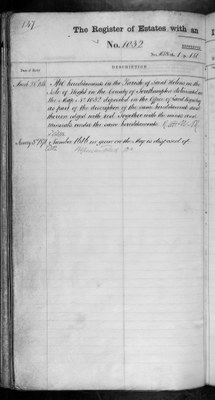 157.
The Register of Estates, with an
No. 1052
DESCRIPTION
Date of Entry
All hereditaments in the Parish of Saint Helens in the
Isle of Wight in the County of Southampton delineated on
the Map No 1052 deposited in the Office of Land Registry
as part of the description of the same hereditaments and
thereon edged with red. Together with the mines and
minerals under the same hereditaments.
Number 1616 in green on the Map is disposed of